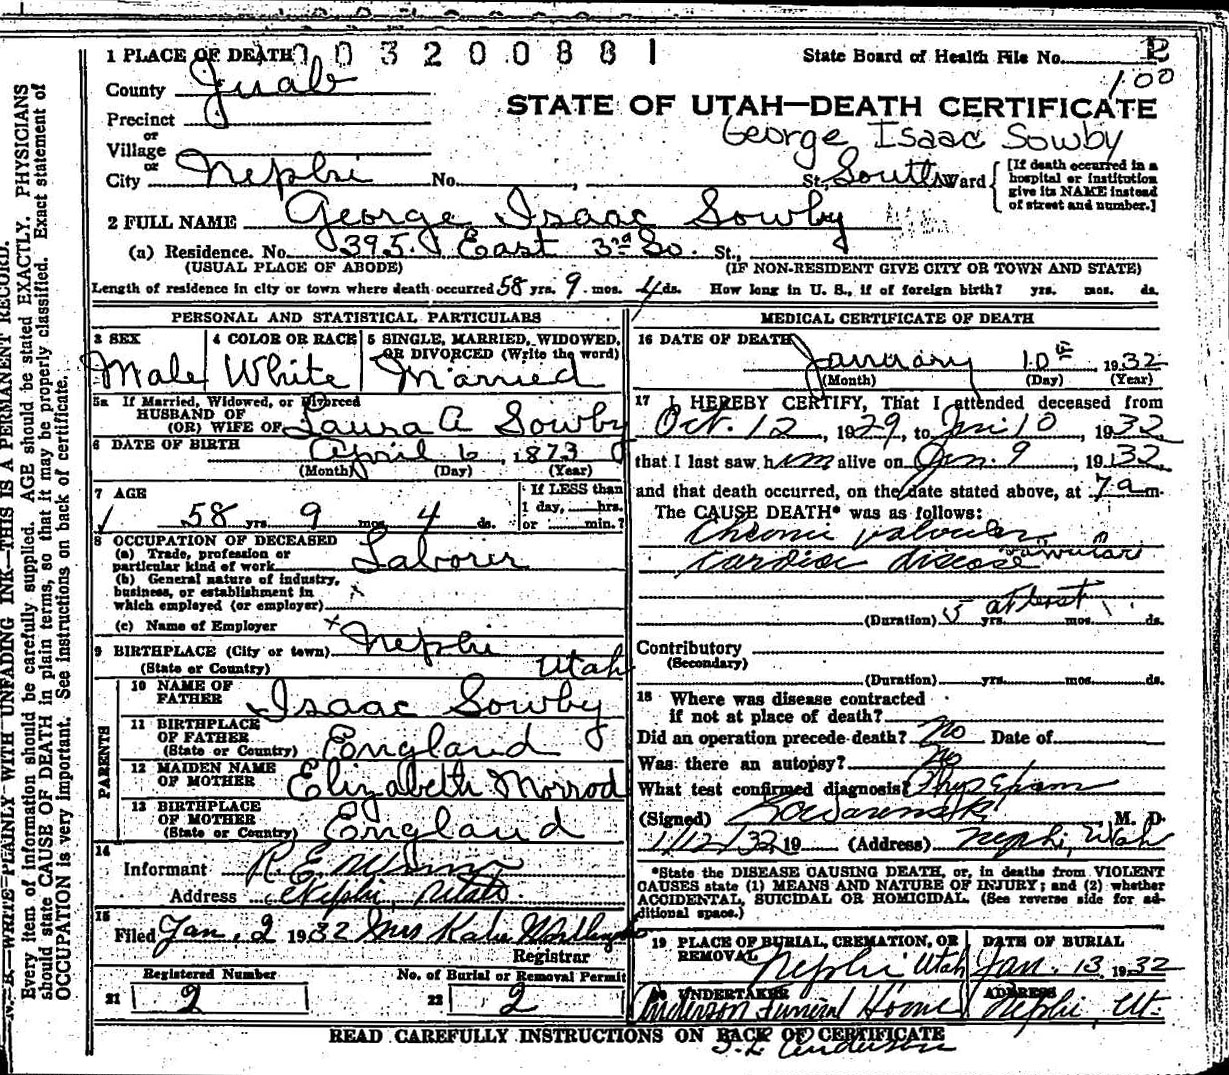 1 PLACE OF DEATH 0 0 3 2 0 0 8 8 1
State Board of Health File No.
1.00
County Juab
STATE OF UTAH—DEATH CERTIFICATE
Precinct
or
George Isaac Sowby
Village
or
City Nephi No. , St., South Ward
[If death occurred in a hospital or institution give its NAME instead of street and number.]
2 FULL NAME George Isaac Sowby
(a) Residence. No. 395 East 3rd So. St.,
(USUAL PLACE OF ABODE) (IF NON-RESIDENT GIVE CITY OR TOWN AND STATE)
Length of residence in city or town where death occurred 58 yrs. 9 mos. 4 ds. How long in U. S., if of foreign birth? yrs. mos. ds.
PERSONAL AND STATISTICAL PARTICULARS
3 SEX
Male
4 COLOR OR RACE
White
5 SINGLE, MARRIED, WIDOWED,
OR DIVORCED (Write the word)
Married
5a If Married, Widowed, or Divorced
HUSBAND OF
(OR) WIFE OF Laura A Sowby
6 DATE OF BIRTH April 6, 1873
(Month) (Day) (Year)
7 AGE
58 yrs. 9 mos. 4 ds.
If LESS than
1 day, hrs.
or min.?
8 OCCUPATION OF DECEASED
(a) Trade, profession or
particular kind of work Laborer
(b) General nature of industry,
business, or establishment in
which employed (or employer)
(c) Name of Employer
9 BIRTHPLACE (City or town) Nephi
(State or Country) Utah
PARENTS
10 NAME OF
FATHER Isaac Sowby
11 BIRTHPLACE
OF FATHER
(State or Country) England
12 MAIDEN NAME
OF MOTHER Elizabeth Morrod
13 BIRTHPLACE
OF MOTHER
(State or Country) England
14
Informant R. E.
Address Nephi, Utah
15
Filed Jan, 2 1932 Mrs Katie
Registrar
Registered Number
21 2
No. of Burial or Removal Permit
22 2
MEDICAL CERTIFICATE OF DEATH
16 DATE OF DEATH January 10th 1932
(Month) (Day) (Year)
17 I HEREBY CERTIFY, That I attended deceased from
Oct. 12, 1929, to Jan 10, 1932
that I last saw him alive on Jan. 9, 1932
and that death occurred, on the date stated above, at 7 a m.
The CAUSE DEATH* was as follows:
Chronic valvular
cardiac disease
(Duration) 5 yrs. at least mos. ds.
Contributory
(Secondary)
(Duration) yrs. mos. ds.
18 Where was disease contracted
if not at place of death?
Did an operation precede death? No Date of
Was there an autopsy? No
What test confirmed diagnosis? Phys Exam
(Signed) M. D.
1/12/32, 19 (Address) Nephi, Utah
*State the DISEASE CAUSING DEATH, or, in deaths from VIOLENT
CAUSES state (1) MEANS AND NATURE OF INJURY; and (2) whether
ACCIDENTAL, SUICIDAL OR HOMICIDAL. (See reverse side for ad-
ditional space.)
19 PLACE OF BURIAL, CREMATION, OR
REMOVAL Nephi Utah
DATE OF BURIAL
Jan. 13 1932
20 UNDERTAKER
Anderson Funeral Home
ADDRESS
Nephi, Ut.
READ CAREFULLY INSTRUCTIONS ON BACK OF CERTIFICATE
Anderson
N. B.—WRITE PLAINLY WITH UNFADING INK—THIS IS A PERMANENT RECORD.
Every item of information should be carefully supplied. AGE should be stated EXACTLY. PHYSICIANS
should state CAUSE OF DEATH in plain terms, so that it may be properly classified. Exact statement of
OCCUPATION is very important. See instructions on back of certificate.